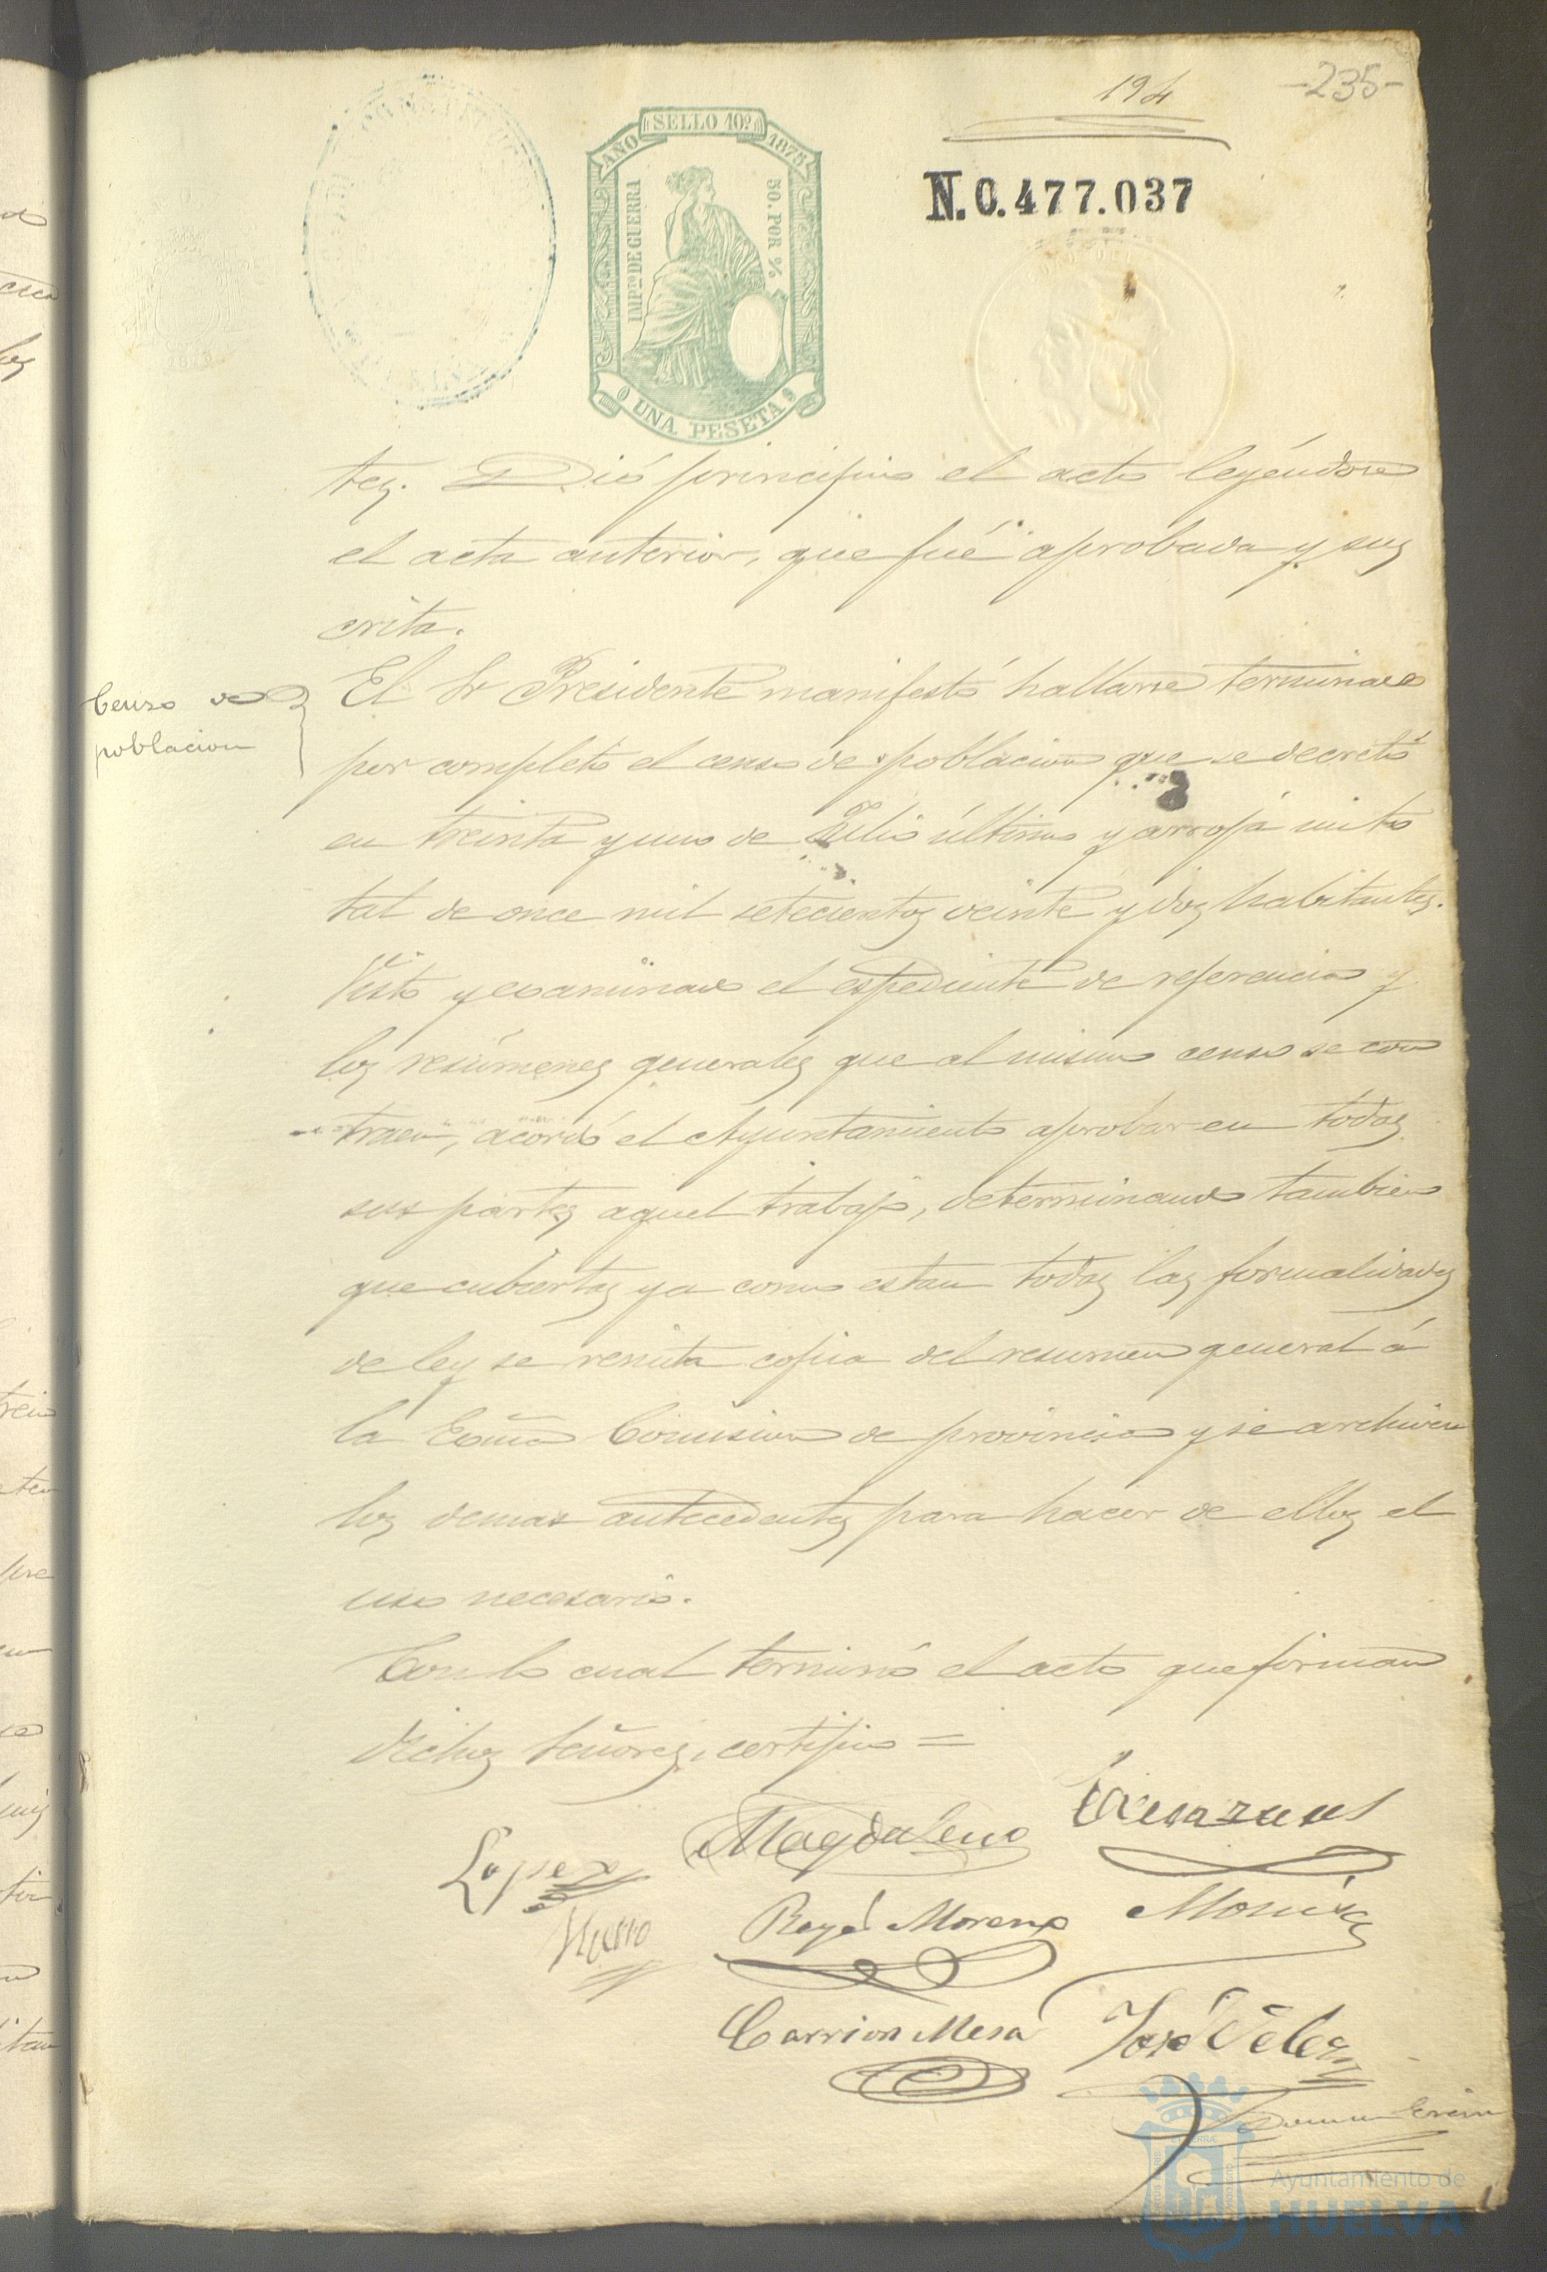 194
-235-
AÑO SELLO 10º 1875
IMPTO DE GUERRA
50. POR %
UNA PESETA
N.0.477.037
tes. Dió principio el acto leyéndose
el acta anterior, que fué aprobada y sus
crita.
Censo de
poblacion
El Sr Presidente manifestó hallarse terminado
por completo el censo de poblacion que se decretó
en treinta y uno de Julio último y arroja un to
tal de once mil setecientos veinte y dos habitantes.
Visto y examinado el espediente de referencia y
los resúmenes generales que al mismo censo se con
traen, acordó el Ayuntamiento aprobar en todas
sus partes aquel trabajo, determinando tambien
que cubiertas ya como estan todas las formalidades
de ley se remita copia del resumen general á
la Exma Comision de provincia y se archiven
los demas antecedentes para hacer de ellos el
uso necesario.
Con lo cual terminó el acto que firman
dichos Señores, certifico =
Lopez
Magdaleno
Reyes Moreno
Carrion Mesa
José Velez
Ayuntamiento de
HUELVA